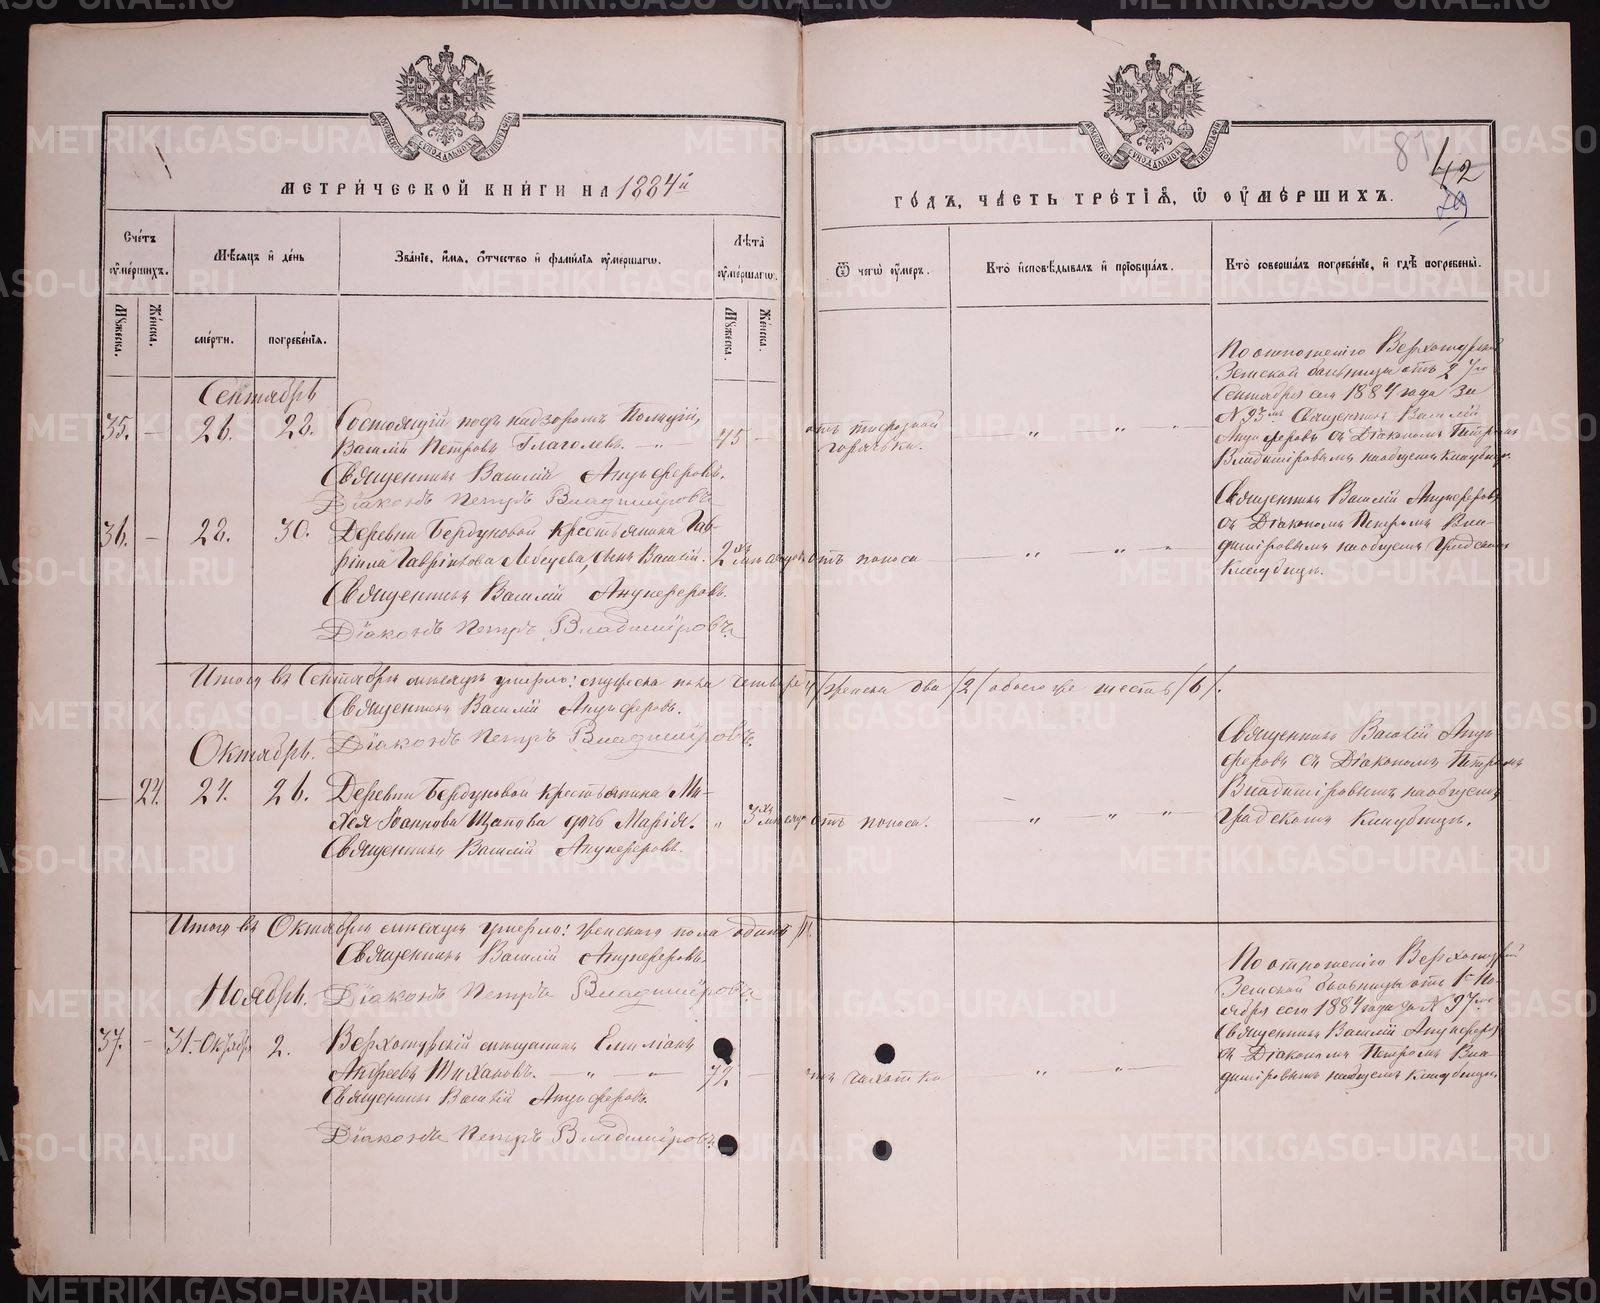 МЕТРИЧЕСКОЙ КНИГИ НА 1884й
ГОДЪ, ЧАСТЬ ТРЕТІЯ, Ѽ ОУМЕРШИХЪ.
81
42
Счетъ оумершихъ.
Мѣсяцъ и день
Званіе, имя, отчество и фамилія оумершагѡ.
Лѣта оумершагѡ.
Ѿ чегѡ оумеръ.
Кто исповѣдывалъ и пріобщалъ.
Кто совершалъ погребеніе, и гдѣ погребены.
Мужеска.
Женска.
смерти.
погребенія.
Мужеска.
Женска.
Сентябрь
35. — 26. 28.
Состоящій подъ надзоромъ Полиціи,
Василій Петровъ Глаголевъ. — „ —
45 —
отъ тифозной
горячки.
— „ „ —
По отношенію Верхотурской
Земской больницы отъ 27го
Сентября сего 1884 года за
N 93мъ Священникъ Василій
Анциферовъ съ Діакономъ Петромъ
Владиміровымъ на общемъ кладбищѣ.
Священникъ Василій Анциферовъ.
Діаконъ Петръ Владиміровъ
36. — 28. 30.
Деревни Бердуновой крестьянина Гав-
ріила Гаврілова сынъ Василій.
2хъ мѣсяцовъ
отъ поноса
— „ „ —
Священникъ Василій Анциферовъ
съ Діакономъ Петромъ Вла-
диміровымъ на общемъ Градскомъ
Кладбищѣ.
Священникъ Василій Анциферовъ.
Діаконъ Петръ Владиміровъ.
Итого въ Сентябрѣ мѣсяцѣ умерло: мужеска пола четыре /4/ женска два /2/ обоего же шесть /6/.
Священникъ Василій Анциферовъ.
Діаконъ Петръ Владиміровъ.
Октябрь.
— 24. 24. 26.
Деревни Бердуновой крестьянина Ми-
хея Іоаннова дочь Марія.
„ 3хъ мѣсяц.
отъ поноса.
— „ „ „ —
Священникъ Василій Анци-
феровъ съ Діакономъ Петромъ
Владиміровымъ на общемъ
Градскомъ Кладбищѣ.
Священникъ Василій Анциферовъ.
Итого въ Октябрѣ мѣсяцѣ умерло: женскаго пола одинъ /1/.
Священникъ Василій Анциферовъ.
Діаконъ Петръ Владиміровъ.
Ноябрь.
37. — 31. Октября 2.
Верхотурскій мѣщанинъ Емиліанъ
Андреевъ — „ —
72 —
отъ чахотки
„ „ —
По отношенію Верхотурской
Земской больницы отъ 1го Но-
ября сего 1884 года за N 97мъ
Священникъ Василій Анциферовъ
съ Діакономъ Петромъ Вла-
диміровымъ на общемъ кладбищѣ.
Священникъ Василій Анциферовъ.
Діаконъ Петръ Владиміровъ.
METRIKI.GASO-URAL.RU